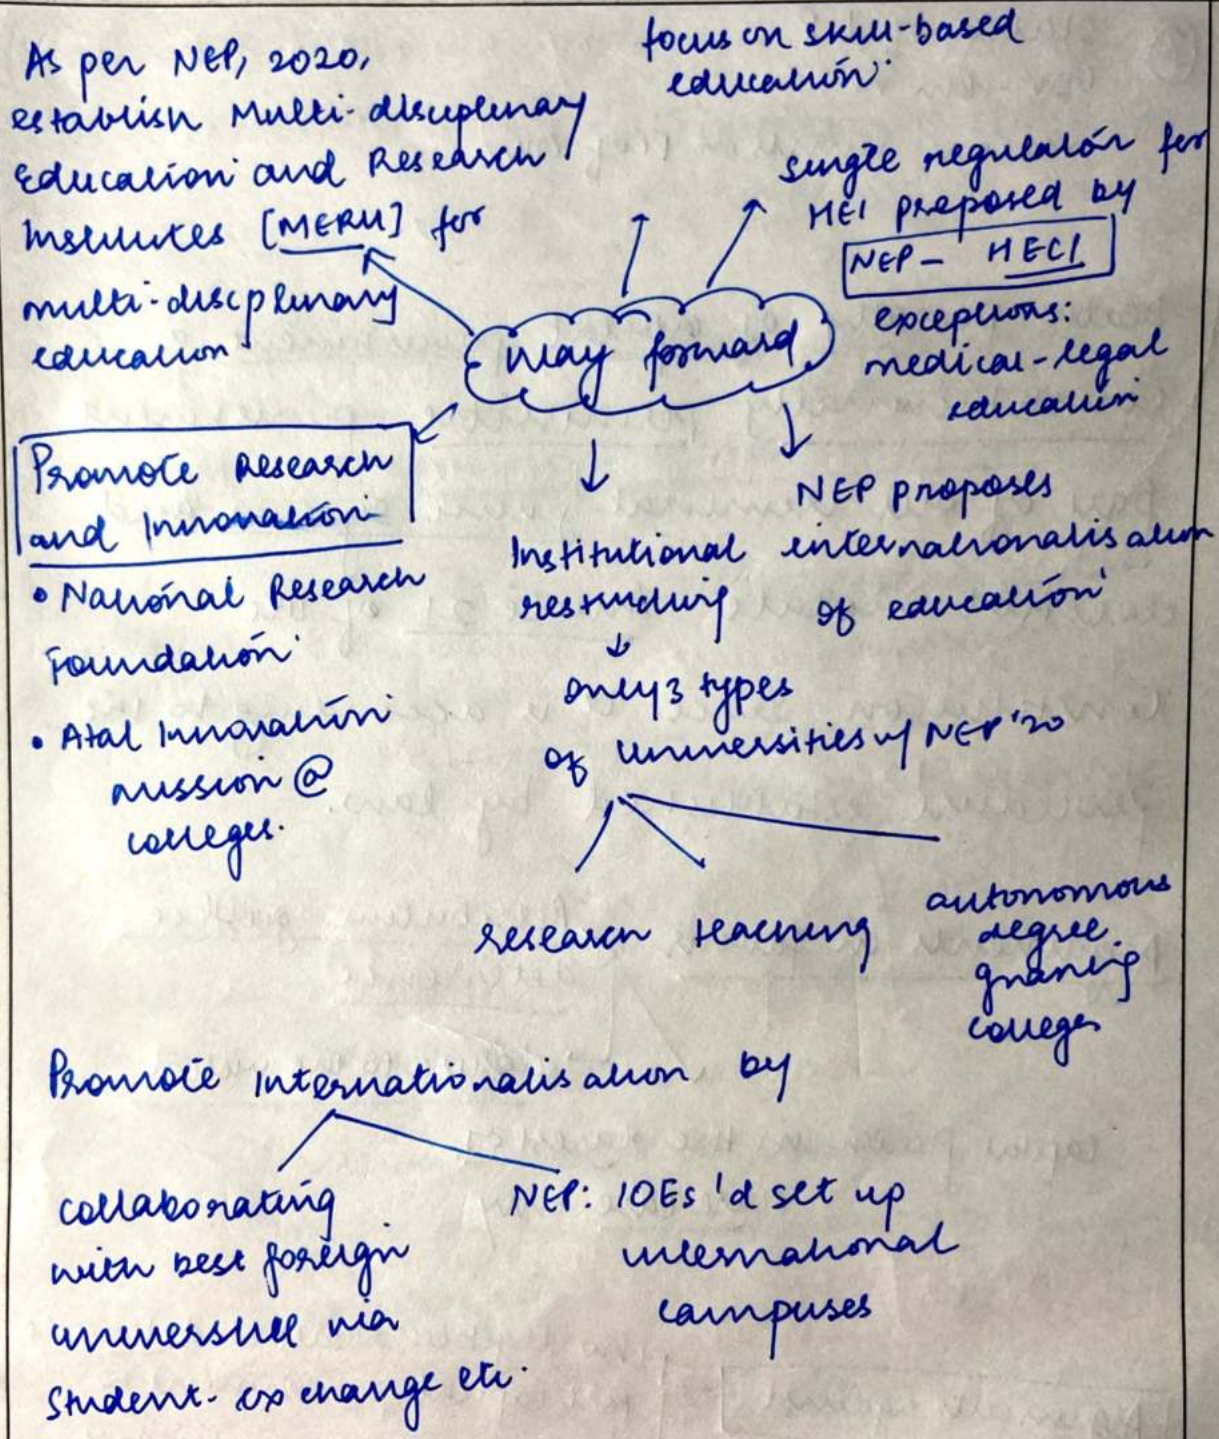 As per NEP, 2020,
establish Multi-disciplinary
Education and Research
Institutes [MERU] for
multi-disciplinary
education
focus on skill-based
education
single regulator for
HEI proposed by
NEP - HECI
exceptions:
medical-legal
education
Way forward
Promote Research
and Innovation
• National Research
Foundation
• Atal Innovation
mission @
colleges.
Institutional
restructuring
↓
only 3 types
of universities w/ NEP '20
research teaching autonomous
degree
granting
colleges
NEP proposes
internationalisation
of education
Promote internationalisation by
collaborating
with best foreign
universities via
student-exchange etc.
NEP: IOEs 'd set up
international
campuses